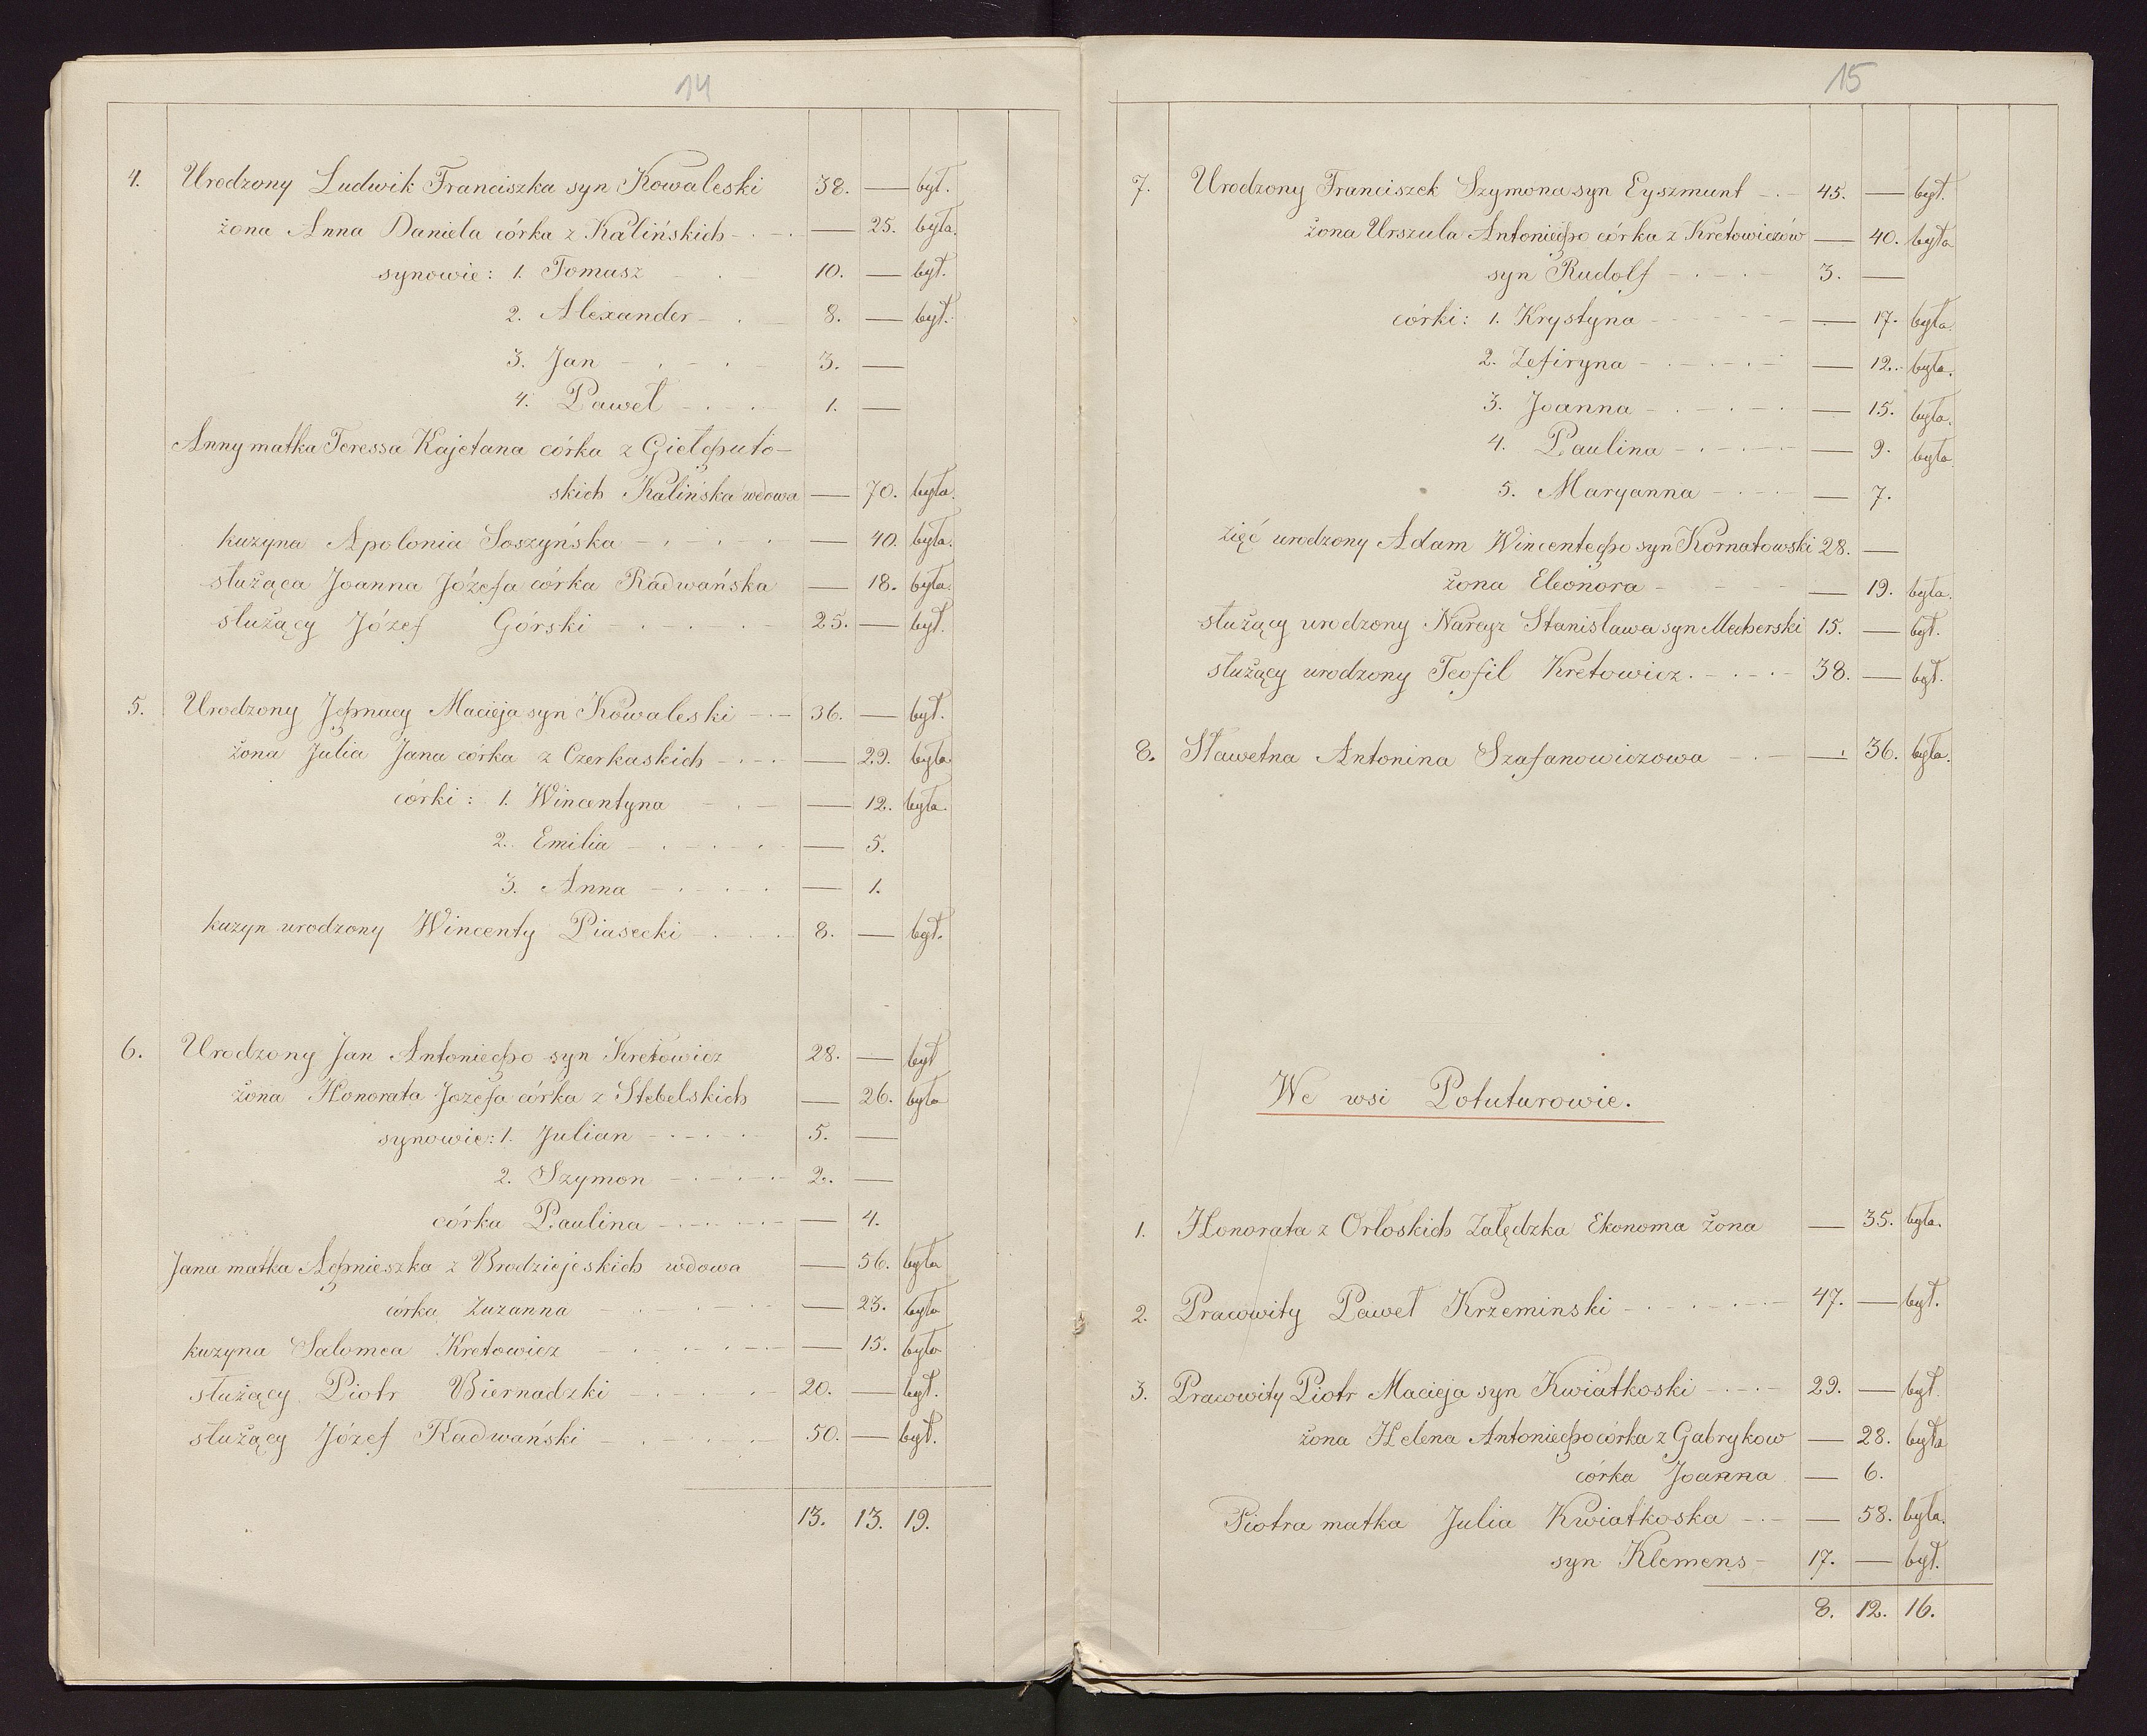 14
4. Urodzony Ludwik Franciszka syn Kowaleski 38. — był.
żona Anna Daniela córka z Kalińskich — 25. była.
synowie: 1. Tomasz 10. — był.
2. Alexander 8. — był.
3. Jan 3. —
4. Paweł 1. —
Anny matka Teressa Kajetana córka z Giełguto-
skich Kalińska wdowa — 70. była.
kuzyna Apolonia Soszyńska — 40. była.
służąca Joanna Józefa córka Radwańska — 18. była.
służący Józef Górski 25. — był.
5. Urodzony Jgnacy Macieja syn Kowaleski 36. — był.
żona Julia Jana córka z Czerkaskich — 29. była
córki: 1. Wincentyna — 12. była.
2. Emilia — 5.
3. Anna — 1.
kuzyn urodzony Wincenty Piasecki 8. — był.
6. Urodzony Jan Antoniego syn Kretowicz 28. — był
żona Honorata Jozefa córka z Stebelskich — 26. była
synowie: 1. Julian 5. —
2. Szymon 2. —
córka Paulina — 4.
Jana matka Agnieszka z Brodziejeskich wdowa — 56. była
córka Zuzanna — 23. była
kuzyna Salomea Kretowicz — 15. była
służący Piotr Biernadzki 20. — był.
służący Józef Radwański 50. — był.
13. 13. 19.
15
7. Urodzony Franciszek Szymona syn Eyszmunt 45. — był.
żona Urszula Antoniego córka z Kretowiczów — 40. była
syn Rudolf 3. —
córki: 1. Krystyna — 17. była.
2. Zefiryna — 12. była.
3. Joanna — 15. była.
4. Paulina — 9. była.
5. Maryanna — 7.
zięć urodzony Adam Wincentego syn Kornatowski 28. —
żona Eleonora — 19. była.
służący urodzony Narcyz Stanisława syn Mecherski 15. — był.
służący urodzony Teofil Kretowicz. 38. — był.
8. Sławetna Antonina Szafanowiczowa — 36. była.
We wsi Potuturowie.
1. Honorata z Orłoskich Zalędzka Ekonoma żona — 35. była.
2. Pracowity Paweł Krzeminski 47. — był.
3. Pracowity Piotr Macieja syn Kwiatkoski 29. — był.
żona Helena Antoniego córka z Gabrykow — 28. była
córka Joanna — 6.
Piotra matka Julia Kwiatkoska — 58. była.
syn Klemens 17. — był.
8. 12. 16.